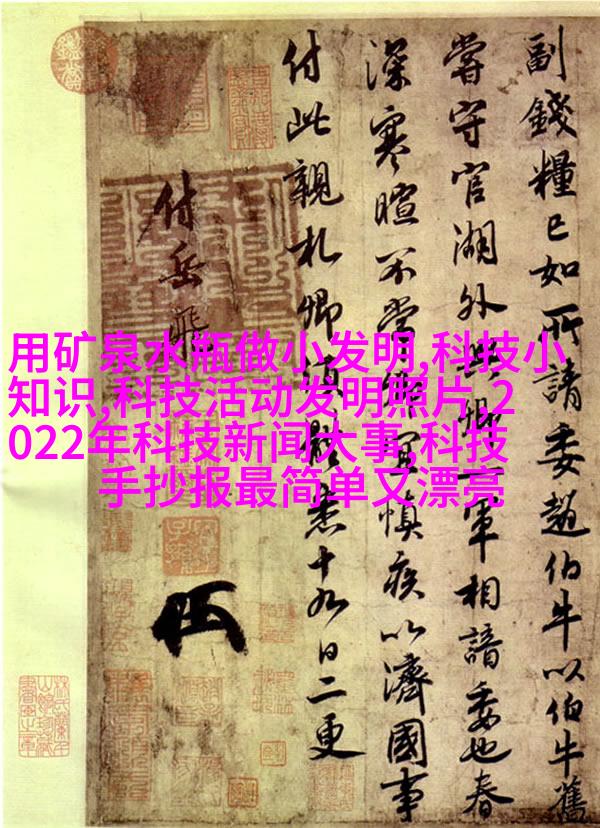 用矿泉水瓶做小发明,科技小
知识,科技活动发明照片,2
022年科技新闻大事,科技
手抄报最简单又漂亮
副錢糧已如所請委趙伯牛以伯牛舊
嘗守官湖外與卿一軍相諳委也春
深寒暄不常卿宜慎疾以濟國事
付此親札卿須體悉十九日二更
付岳飛